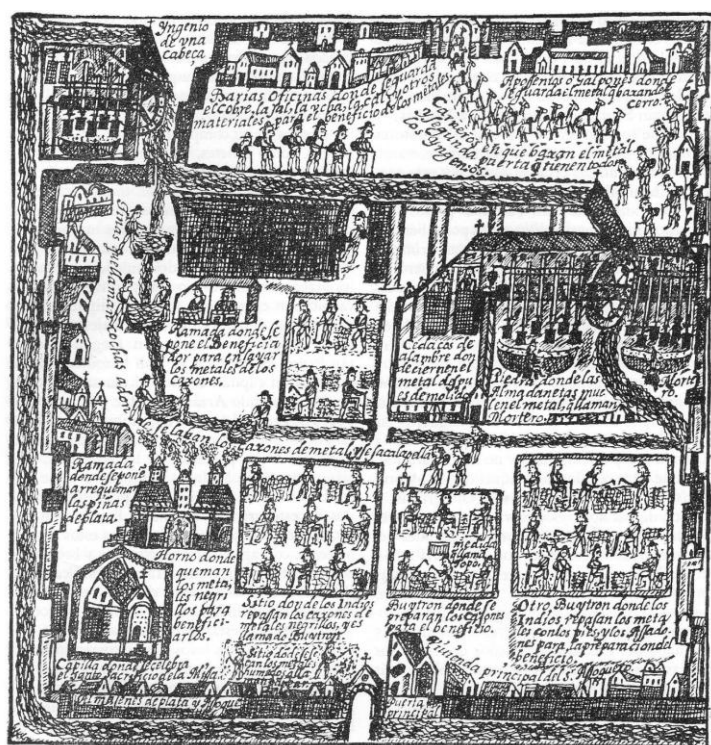 Yngenio
de vna
cabeça
Barias Oficinas donde se guarda
el Cobre, la sal, la
materiales para beneficio de los metales
Aposentos o Galpones donde
se guarda el metal q baxan de
cerro.
Carneros en que baxan el metal
y segunda puerta q tienen todos
los Yngenios.
Tinas q llaman cochas adon
de se laban los caxones de metal y se saca la pella
Ramada donde se
pone el Beneficia
dor para ensayar
los metales de los
caxones.
Cedaços de
alambre don
de ciernen el
metal
es de molido
Piedra donde las
Almadanetas mue
len el metal, q llaman
Mortero.
Morte
ro.
Ramada
donde se pone
a rrequemar
las piñas
de plata.
Horno donde
queman
los meta
les negri
llos para
benefici
arlos.
Sitio donde los Indios
repasan los caxones de
metales negrillos, q es
llamado Buytron.
topo.
Buytron donde se
preparan los caxones
para el beneficio.
Otro Buytron donde los
Indios repasan los meta
les con los pies y los Assado
nes para la preparacion del
beneficio.
Capilla donde se celebra
el santo sacrificio de la Missa
Sitio
Almasenes de plata y Asogue
Puerta
principal
Vivienda principal del S. Asoguero